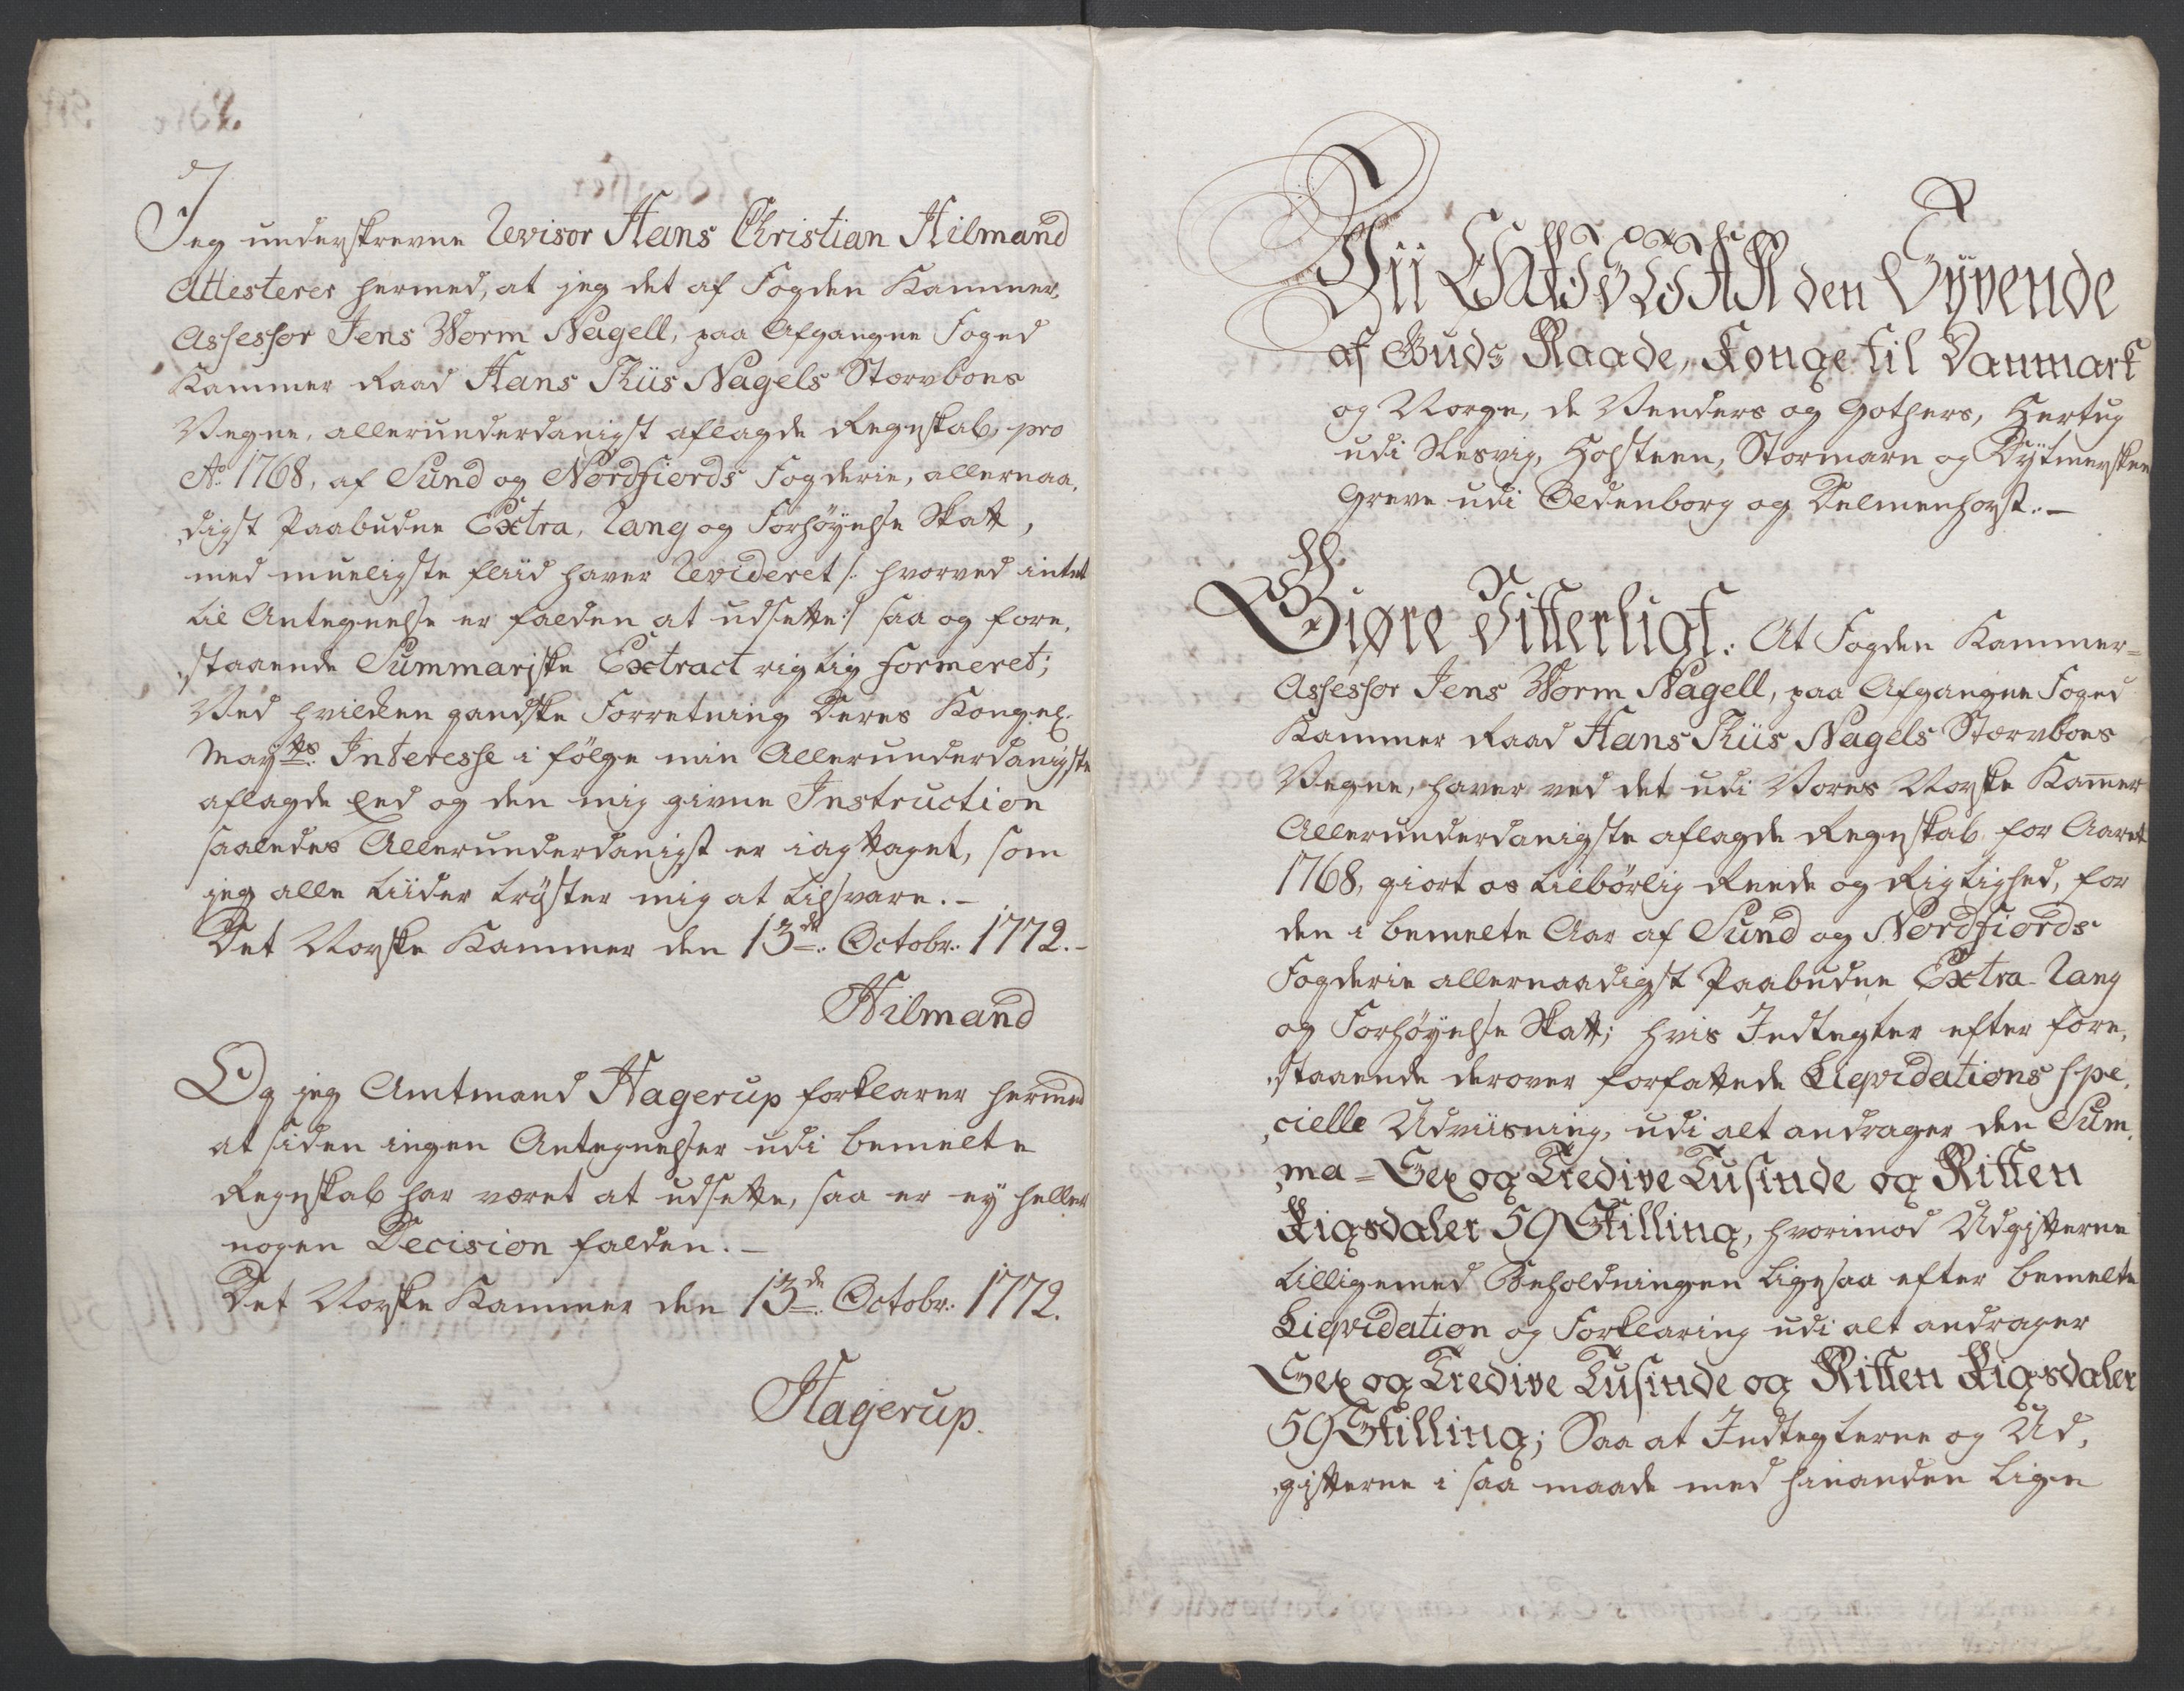 Jeg underskrevne Revisor Hans Christian Hilmand
Attesterer hermed, at jeg det af Fogden Kammer,
Assessor Jens Worm Nagell, paa Afgangne Foged
Kammer Raad Hans Thüs Nagels Stervboes
Vegne, allerunderdanigst aflagde Regnskab, pro
Ao. 1768, af Sund og Nordfiords Fogderie, allernaa,
,digst Paabudne Extra, Rang og Forhøyelse Skatt,
med mueligste fliid haver Revideret /: hvorved intet
til Antegnelse er falden at udsette :/ saa og fore,
,staaende Summariske Extract rigtig formeret;
Ved hvilcken gandske Forretning Deres Kongel.
Maytts. Interesse i følge min Allerunderdanigste
aflagde Eed og den mig givne Instruction
saaledes Allerunderdanigst er iagttaget, som
jeg alle tiider trøster mig at tilsvare. -
Det Norske Kammer den 13de. Octobr: 1772. -
Hilmand
Og jeg Amtmand Hagerup forklarer hermed
at siden ingen Antegnelser udi bemelte
Regnskab har været at udsette, saa er ey heller
nogen Decision falden. -
Det Norske Kammer den 13de. Octobr: 1772.
Hagerup.
Vii CHRISTIAN den Syvende
af Guds Naade, Konge til Danmark
og Norge, de Venders og Gothers, Hertug
udi Slesvig, Holsteen, Stormarn og Dytmersken
Greve udi Oldenborg og Delmenhorst. -
Giøre Vitterligt: At Fogden Kammer=
Assessor Jens Worm Nagell, paa Afgangne Foged
Kammer Raad Hans Thüs Nagels Stervboes
Vegne, haver ved det udi Vores Norske Kammer
Allerunderdanigste aflagde Regnskab, for Aaret
1768, giort os tilbørlig Reede og Rigtighed, for
den i bemelte Aar af Sund og Nordfiords
Fogderie allernaadigst Paabudne Extra Rang
og Forhøyelse Skatt; hvis Indtegter efter fore,
,staaende derover forfattede Liqvidations spe,
,cielle Udviisning, udi alt andrager den Sum,
,ma = Sex og Tredive Tusinde og Nitten
Rigsdaler 59 Skilling, hvorimod Udgifterne
tilligemed Beholdningen ligesaa efter bemelte
Liqvidation og Forklaring udi alt andrager
Sex og Tredive Tusinde og Nitten Rigsdaler
59 Skilling; Saa at Indtegterne og Ud,
,gifterne i saa maade med hinanden lige